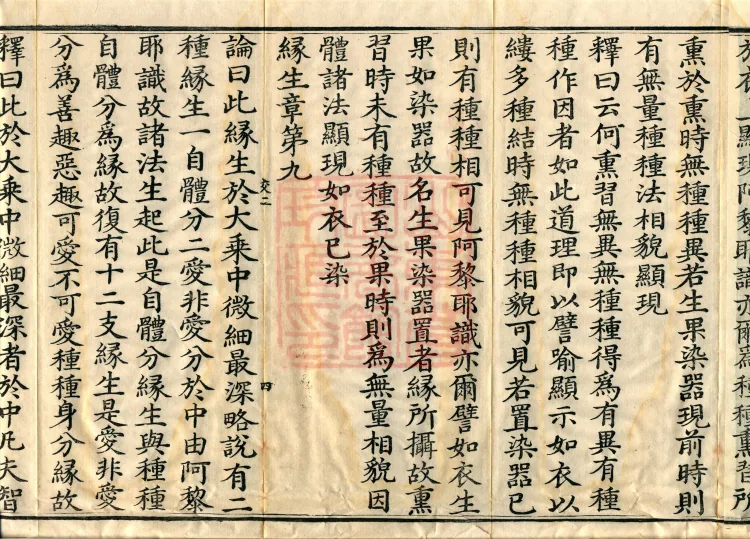 顯現阿黎耶識亦爾爲種種熏習所
熏於熏時無種種異若生果染器現前時則
有無量種種法相貌顯現
釋曰云何熏習無異無種種得爲有異有種
種作因者如此道理即以譬喻顯示如衣以
縷多種結時無種種相貌可見若置染器已
則有種種相可見阿黎耶識亦爾譬如衣生
果如染器故名生果染器置者緣所攝故熏
習時未有種種至於果時則爲無量相貌因
體諸法顯現如衣已染
緣生章第九
交二 四
論曰此緣生於大乘中微細最深略說有二
種緣生一自體分二愛非愛分於中由阿黎
耶識故諸法生起此是自體分緣生與種種
自體分爲緣故復有十二支緣生是愛非愛
分爲善趣惡趣可愛不可愛種種身分緣故
釋曰此於大乘中微細最深者於中凡夫智